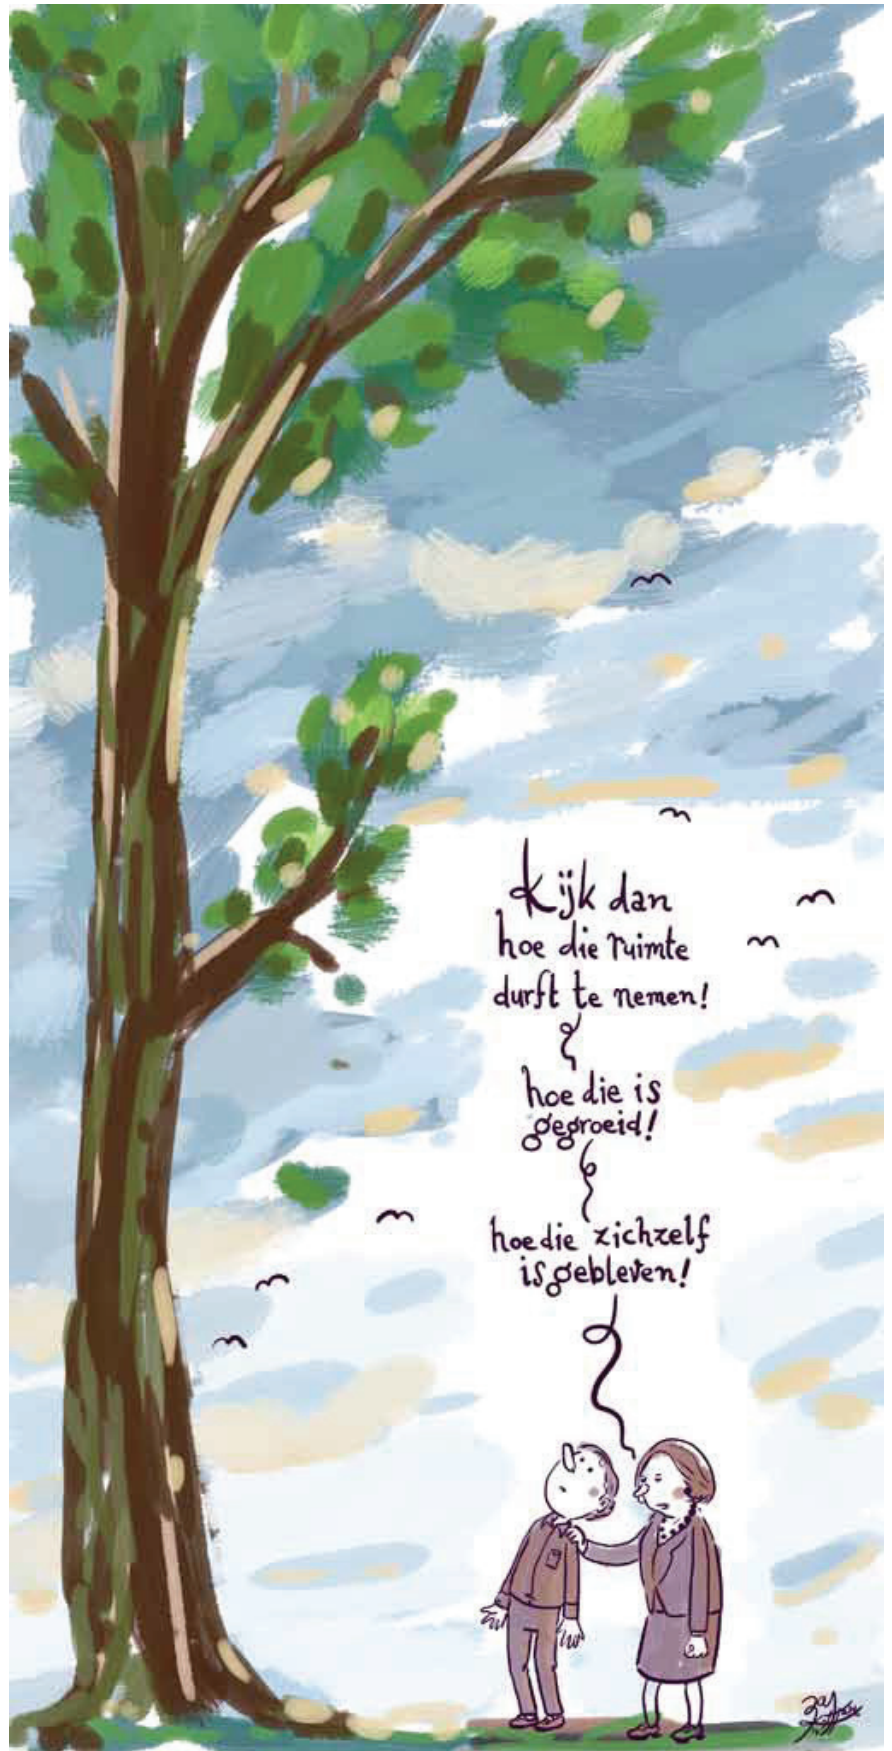 kijk dan
hoe die ruimte
durft te nemen!
hoe die is
gegroeid!
hoe die zichzelf
is gebleven!